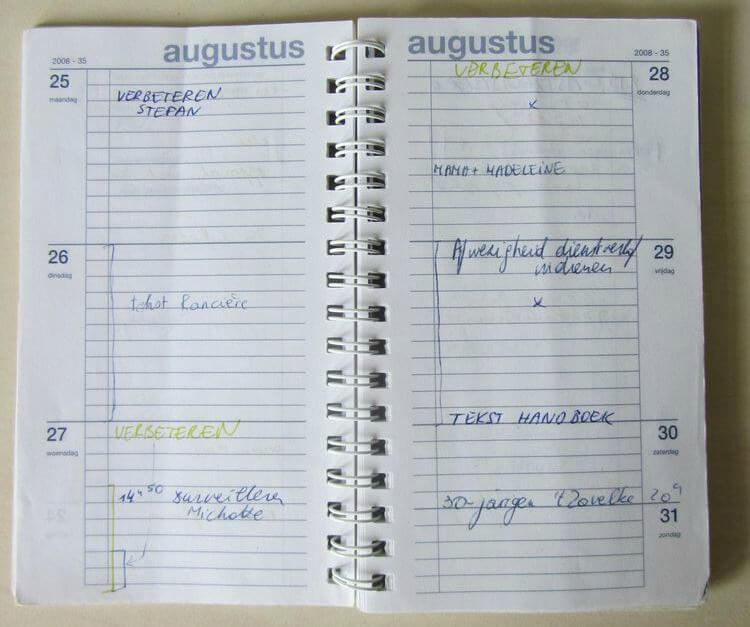 augustus
2008 - 35
25
maandag
VERBETEREN
STEFAN
26
dinsdag
tekst Rancière
27
woensdag
VERBETEREN
14u50 surveilleren
Michotte
augustus
2008 - 35
28
donderdag
VERBETEREN
x
MAMA + MADELEINE
29
vrijdag
Afwezigheid dienstverlof
indienen
x
TEKST HANDBOEK
30
zaterdag
30-jarigen 't Zavelke 20u
31
zondag